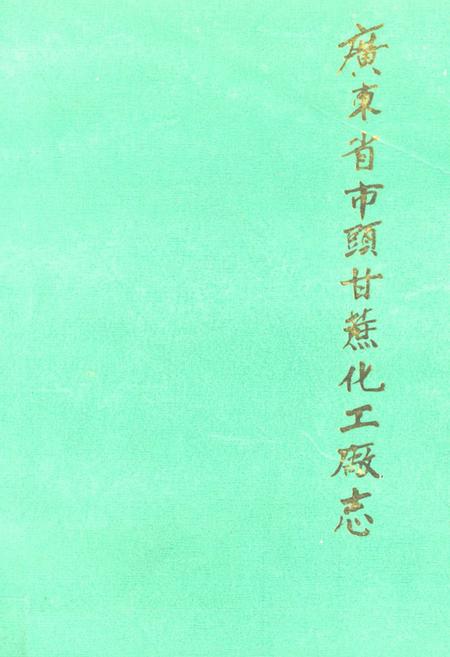 廣東省市頭甘蔗化工廠志